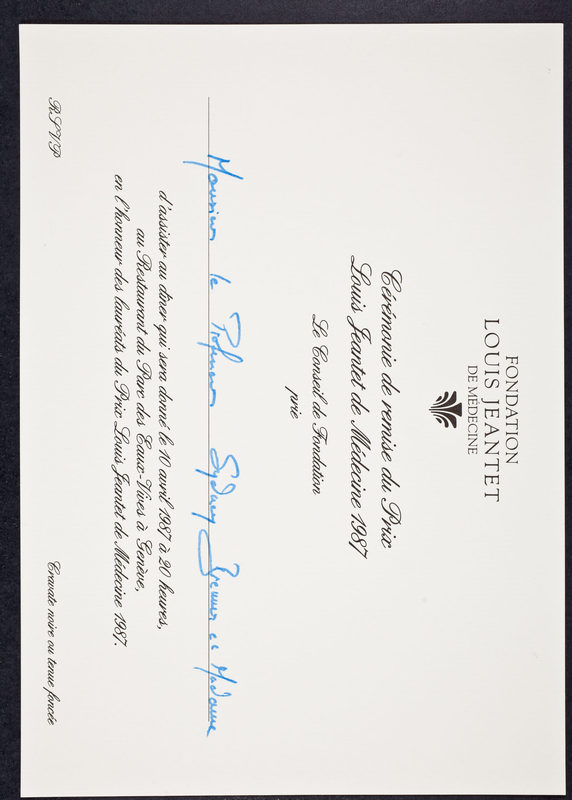 FONDATION
LOUIS JEANTET
DE MÉDECINE
Cérémonie de remise du Prix
Louis Jeantet de Médecine 1987
Le Conseil de Fondation
prie
Monsieur le Professeur Sydney Brenner et Madame
d'assister au dîner qui sera donné le 10 avril 1987 à 20 heures,
au Restaurant du Parc des Eaux-Vives à Genève,
en l'honneur des lauréats du Prix Louis Jeantet de Médecine 1987.
RSVP
Cravate noire ou tenue foncée